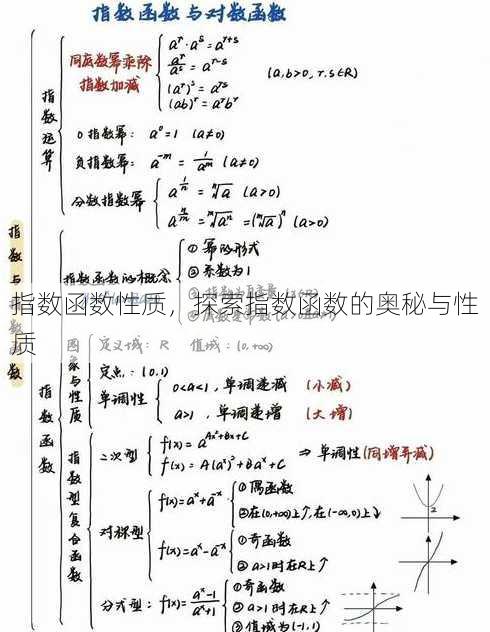 指数函数与对数函数
指数与
数
指数运算
同底数幂乘除
指数加减
aʳ·aˢ=aʳ⁺ˢ
aʳ/aˢ=aʳ⁻ˢ
(aʳ)ˢ=aʳˢ
(ab)ʳ=aʳbʳ
(a,b>0, r.s∈R)
0指数幂: a⁰=1 (a≠0)
负指数幂: a⁻ᵐ = 1/aᵐ (a≠0)
分数指数幂
指数函数的概念
①幂的形式
②系数为1
指数函数性质，探索指数函数的奥秘与性
质
指数函数
图象与性质
定义域: R 值域: (0,+∞)
定点: (0,1)
单调性
0<a<1, 单调递减 (小减)
a>1, 单调递增 (大增)
指数型复合函数
二次型
f(x)=a^(Ax²+Bx+C)
f(x)=A(aˣ)²+Baˣ+C
⇒单调性(同增异减)
对称型
f(x)=aˣ+a⁻ˣ
①偶函数
②在(0,+∞)上↗,在(-∞,0)上↘
2
f(x)=aˣ-a⁻ˣ
①奇函数
②a>1时在R上↗
分式型: f(x)=(aˣ-1)/(aˣ+1)
①奇函数
②a>1时在R上↗
③值域为(-1,1)